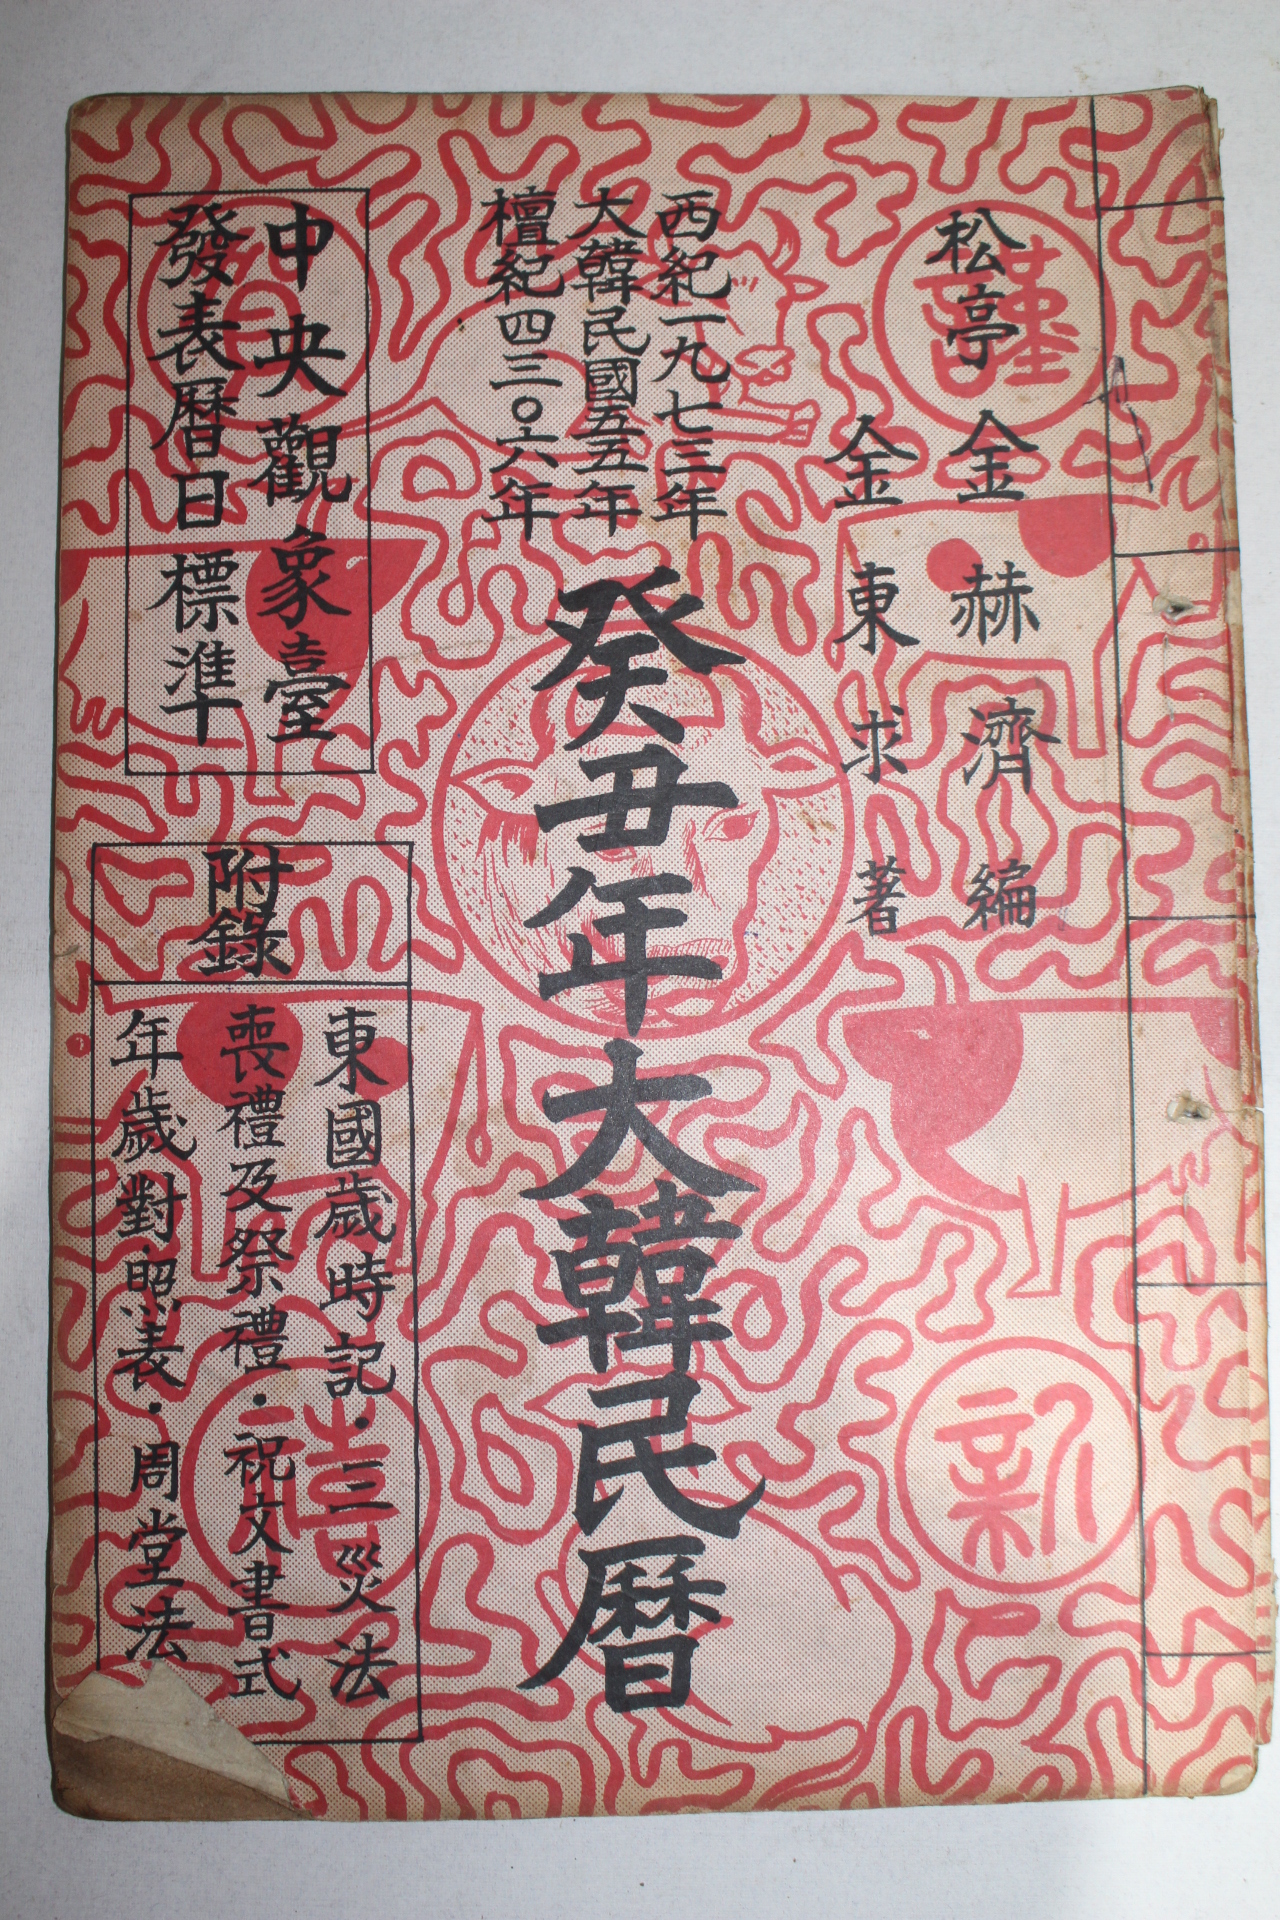 松亭 金赫濟 編
金東求 著
西紀一九七三年
大韓民國五五年
檀紀四三〇六年
癸丑年大韓民曆
中央觀象臺
發表曆日標準
附錄
東國歲時記·三災法
喪禮及祭禮·祝文書式
年歲對照表·周堂法
謹
賀
新
禧